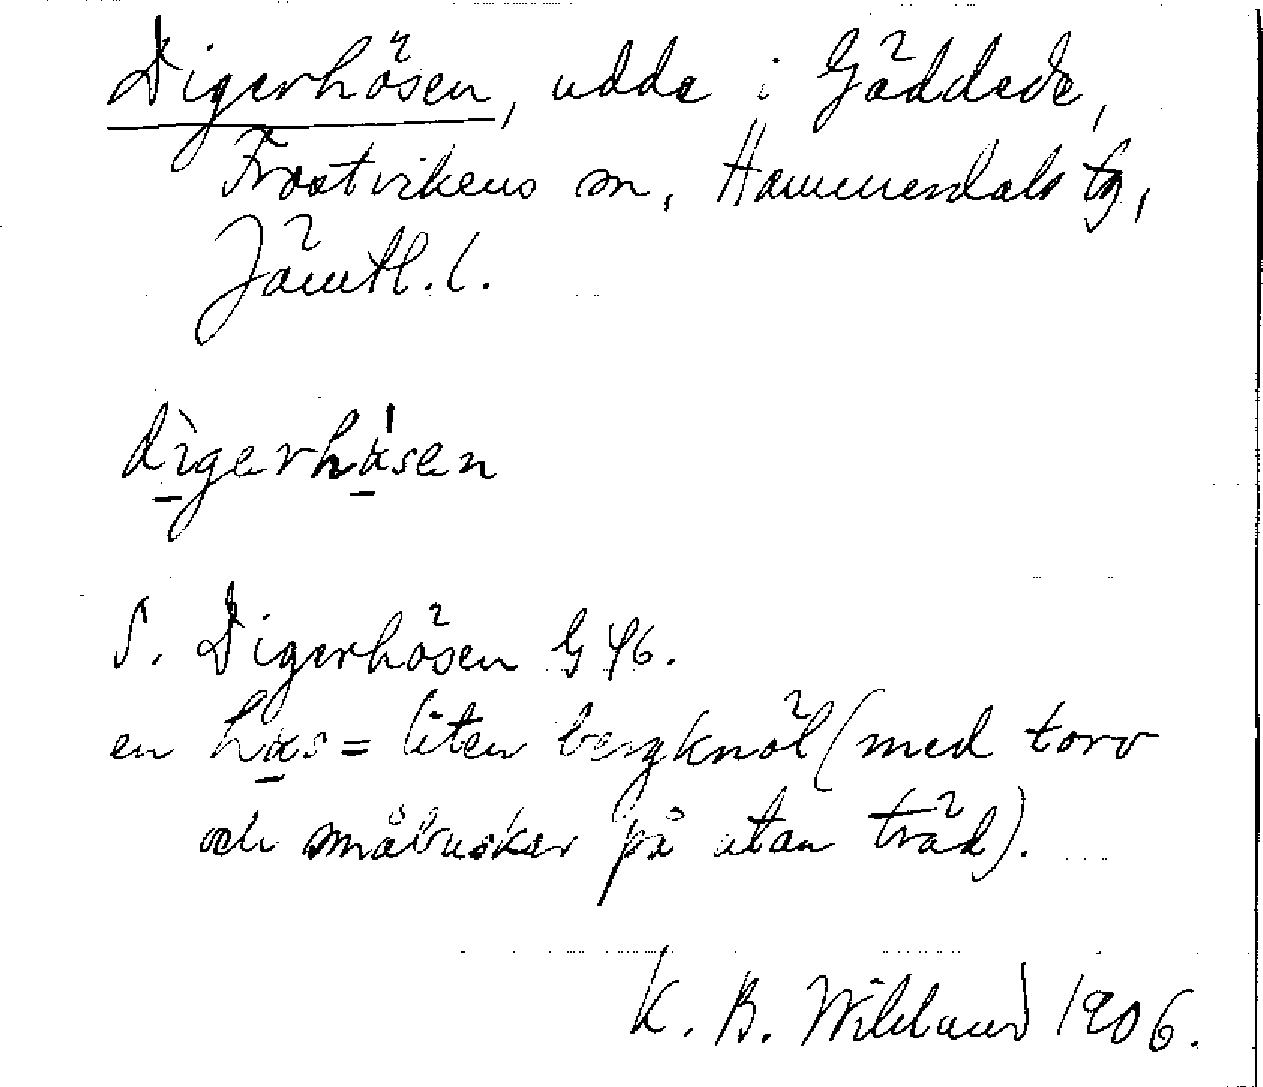 Digerhösen, udde i Gäddede,
Frostvikens sn, Hammerdals tg,
Jämtl. l.
dìgerhásen
S. Digerhösen G 46.
en has = liten bergknöl (med torv
och småbuskar på utan träd).
K. B. Wiklund 1906.